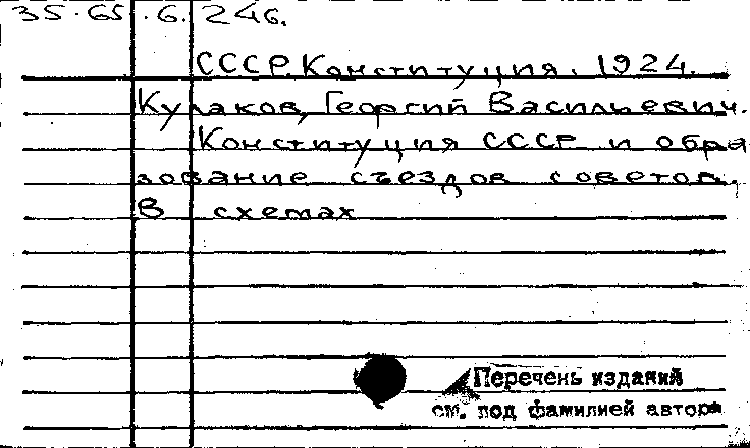 35.65.6.246.
СССР. Конституция. 1924.
Кулаков, Георгий Васильевич.
Конституция СССР и обра
зование съездов советов.
В схемах
Перечень изданий
см. под фамилией автора